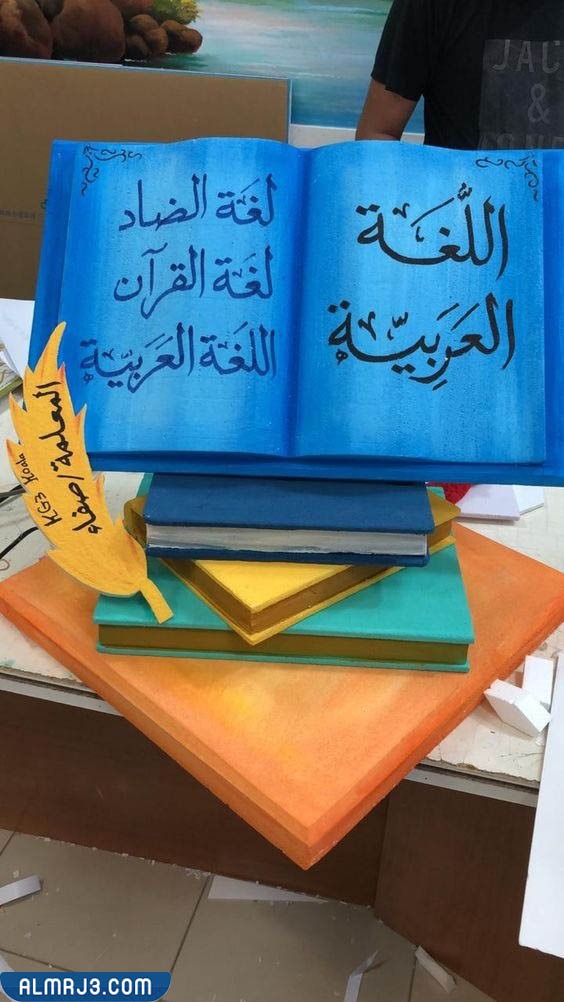 اللُّغَة
العَرَبِيّة
لغَة الضاد
لغَة القرآن
اللغَة العَرَبيّة
المعلمة/صفاء
KG3 Koala
JAC
&
ALMRJ3.COM